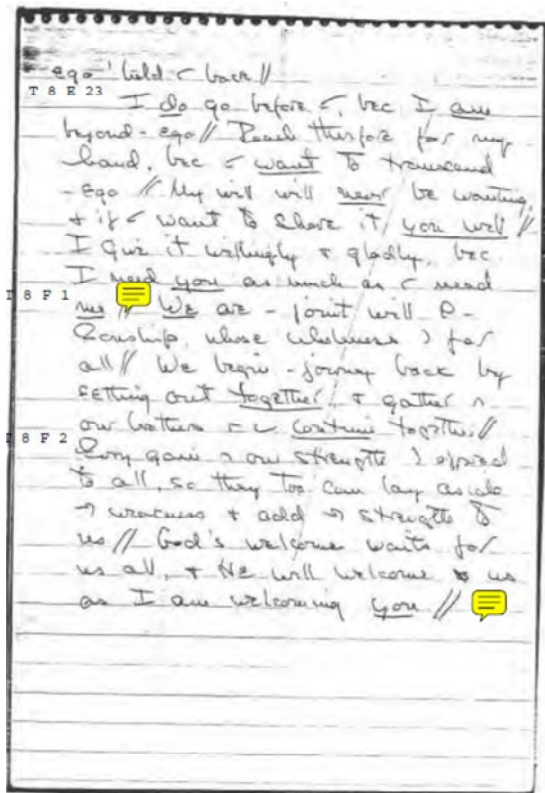 ego' hold back //
T 8 E 23
I do go before, bec I am
beyond - ego // Reach therefore for my
hand, bec want to transcend
- ego // My will will never be wanting,
& if want to share it you will //
I give it willingly & gladly, bec
I need you as much as need
T 8 F 1
me // We are - joint will
Sonship, whose wholeness ) for
all // We begin - journey back by
setting out together, & gather
our brothers continue together. //
T 8 F 2
Every gain our strength ) offered
to all, so they too can lay aside
weakness & add strength to
us // God's welcome waits for
us all, & He will welcome us
as I am welcoming you //